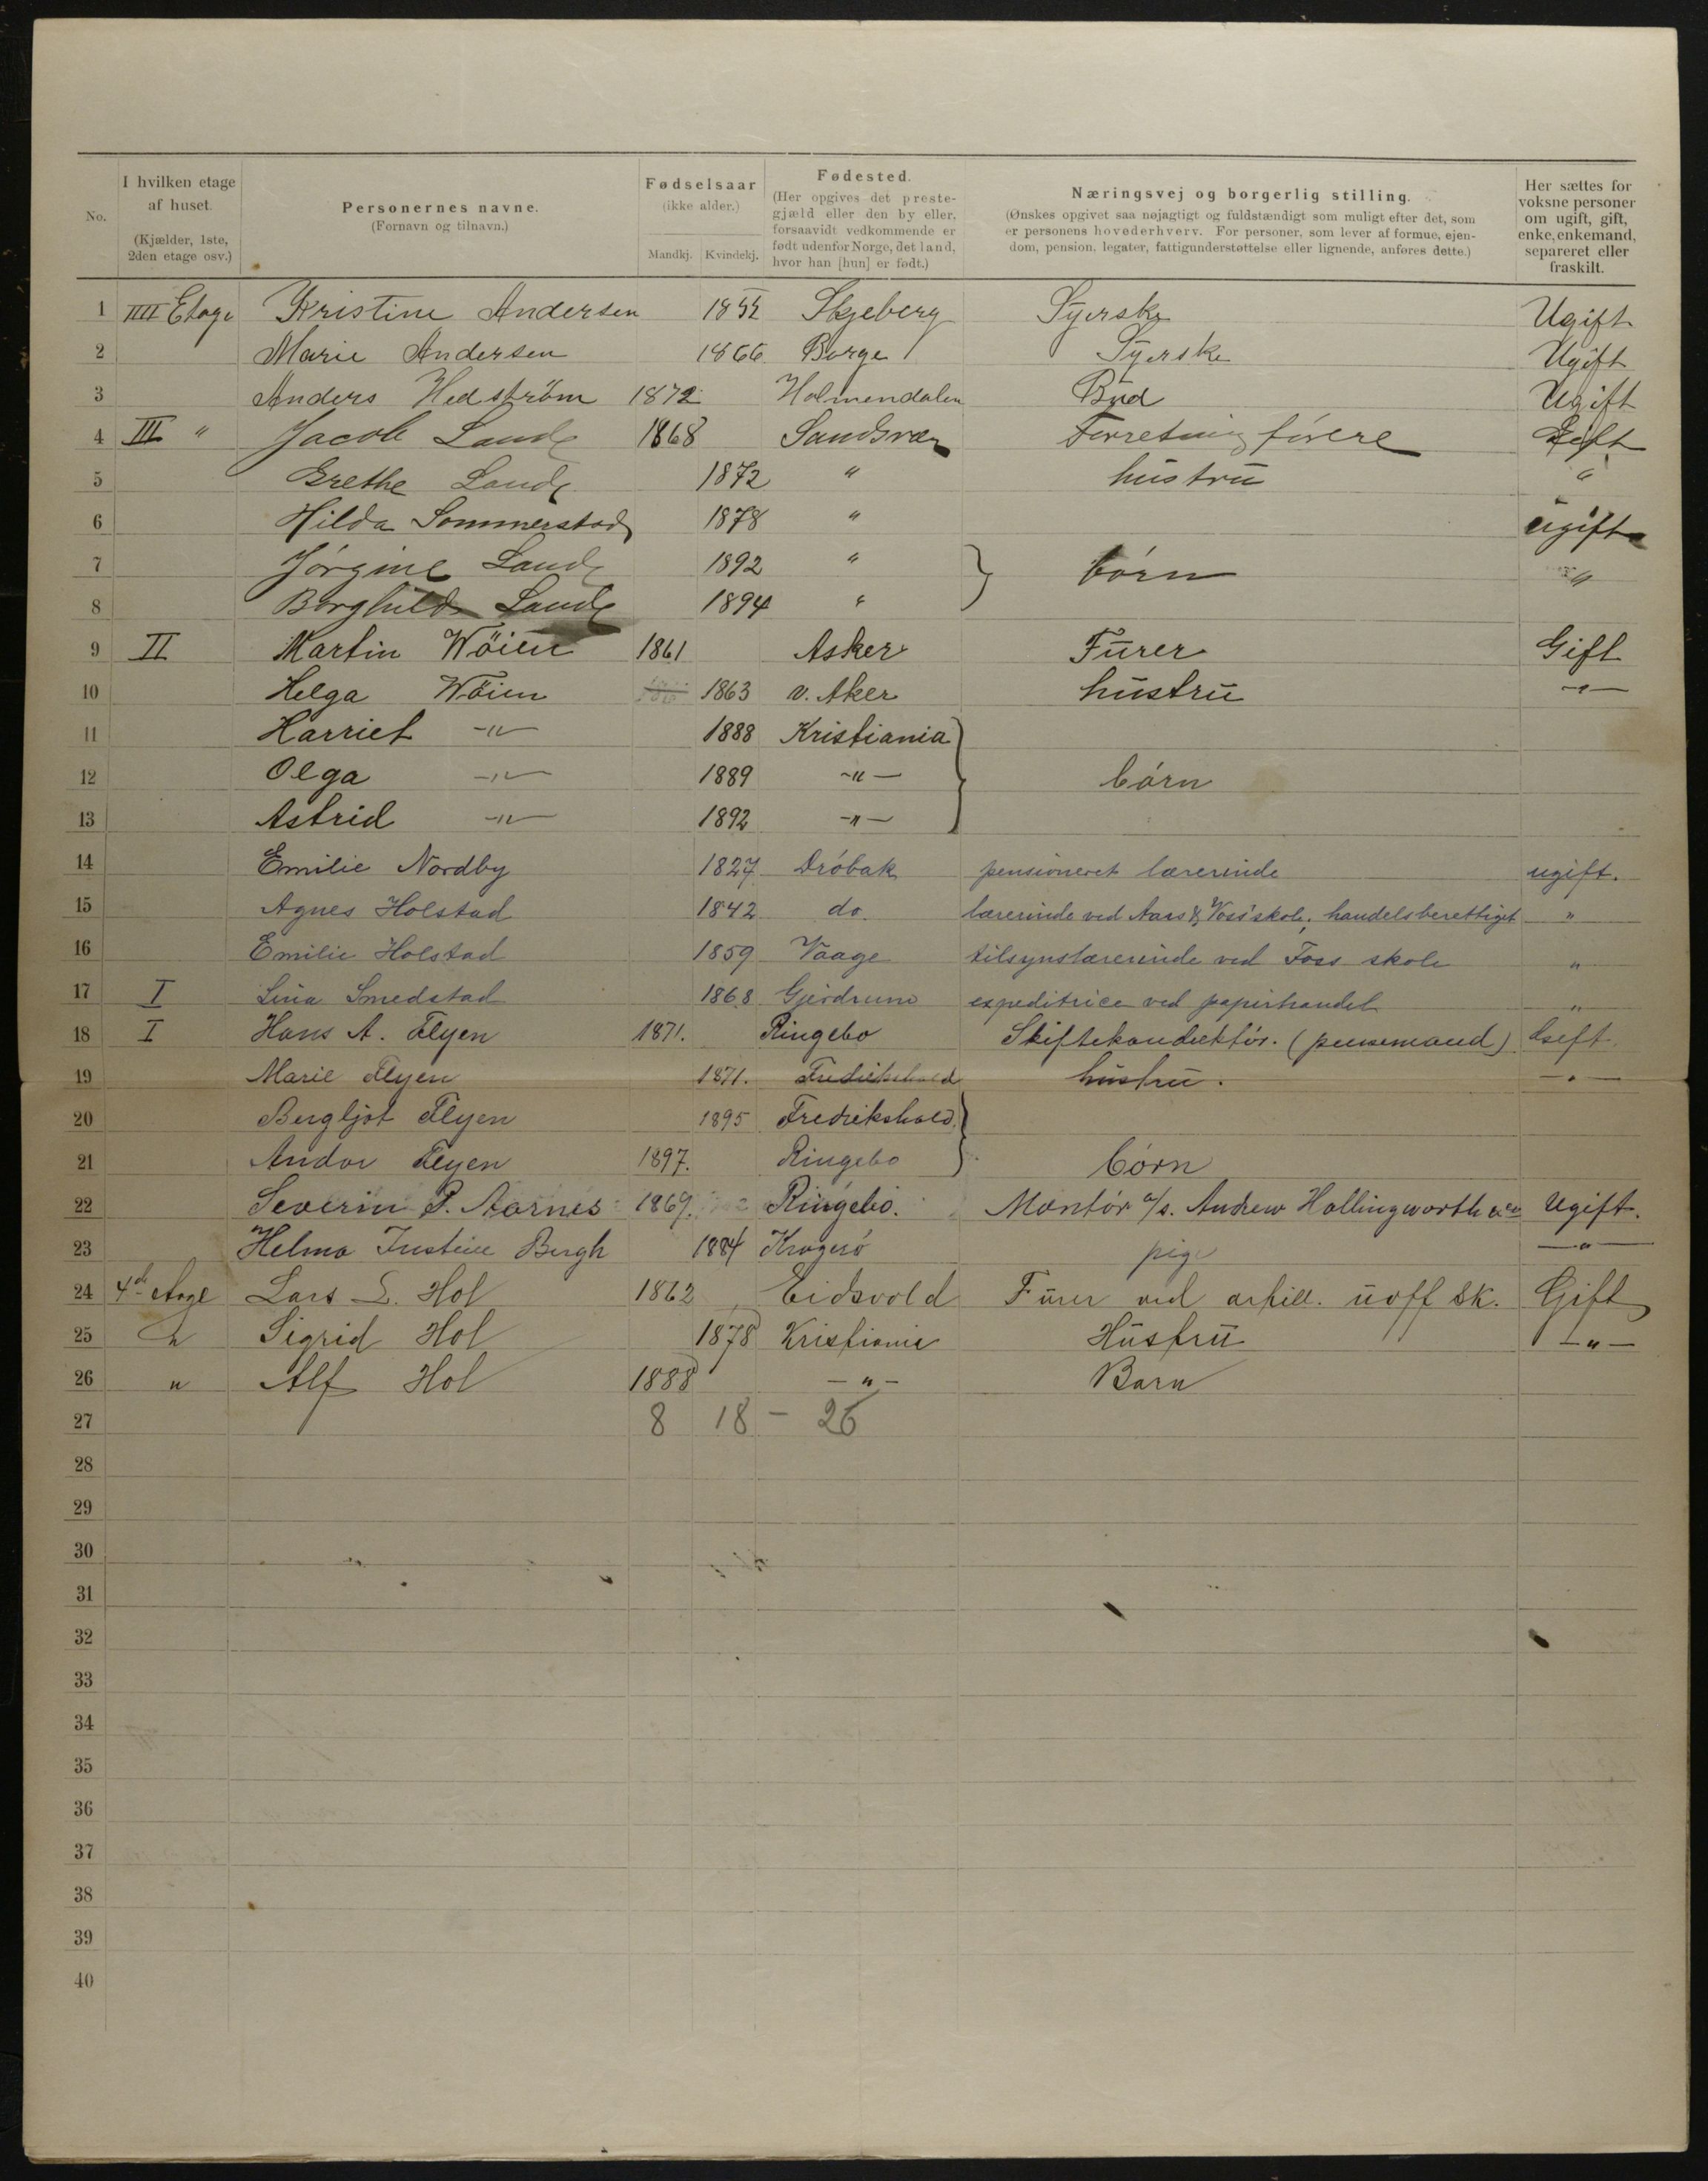 No.
I hvilken etage af huset. (Kjælder, 1ste, 2den etage osv.)
Personernes navne. (Fornavn og tilnavn.)
Fødselsaar (ikke alder.) Mandkj. Kvindekj.
Fødested. (Her opgives det prestegjæld eller den by eller, forsaavidt vedkommende er født udenfor Norge, det land, hvor han [hun] er født.)
Næringsvej og borgerlig stilling. (Ønskes opgivet saa nøjagtigt og fuldstændigt som muligt efter det, som er personens hovederhverv. For personer, som lever af formue, ejendom, pension, legater, fattigunderstøttelse eller lignende, anføres dette.)
Her sættes for voksne personer om ugift, gift, enke, enkemand, separeret eller fraskilt.
1 IIII Etage Kristine Andersen 1852 Skjeberg Syerske Ugift
2 Marie Andersen 1866 Borge Syerske Ugift
3 Anders Hedström 1872 Holmendalen Bud Ugift
4 III " Jacob Lande 1868 Sandsvær Forretningförere Gift
5 Grethe Lande 1872 " hustru "
6 Hilda Sommerstad 1878 " ugift
7 Jörgine Lande 1892 " } börn "
8 Borghild Lande 1894 "
9 II Martin Wöien 1861 Asker Furer Gift
10 Helga Wöien 1863 v. Aker hustru -"-
11 Harriet -"- 1888 Kristiania
12 Olga -"- 1889 -"- } börn
13 Astrid -"- 1892 -"-
14 Emilie Nordby 1827 Dröbak pensioneret lærerinde ugift.
15 Agnes Holstad 1842 do. lærerinde ved Aars & Voss' skole, handelsberettiget "
16 Emilie Holstad 1859 Vaage tilsynslærerinde ved Foss skole "
17 I Lina Smedstad 1868 Gjerdrum expeditrice ved papirhandel "
18 I Hans A. Flyen 1871. Ringebo Skiftekonduktör. Gift
19 Marie Flyen 1871. Fredrikshald hustru. -"-
20 Bergljot Flyen 1895 Fredrikshald
21 Andor Flyen 1897. Ringebo } börn
22 Severin P. Aarnes 1869. Ringebo. Montör a/s. Andrew Hollingworth Ugift.
23 Helma Justine Bergh 1884 Kragerö pige -"-
24 4de Lars L. Hol 1862 Eidsvold Furer ved artill. uoff sk. Gift
25 " Sigrid Hol 1878 Kristiania Hustru -"-
26 " Alf Hol 1888 -"- Barn
27 8 18 - 26
28
29
30
31
32
33
34
35
36
37
38
39
40